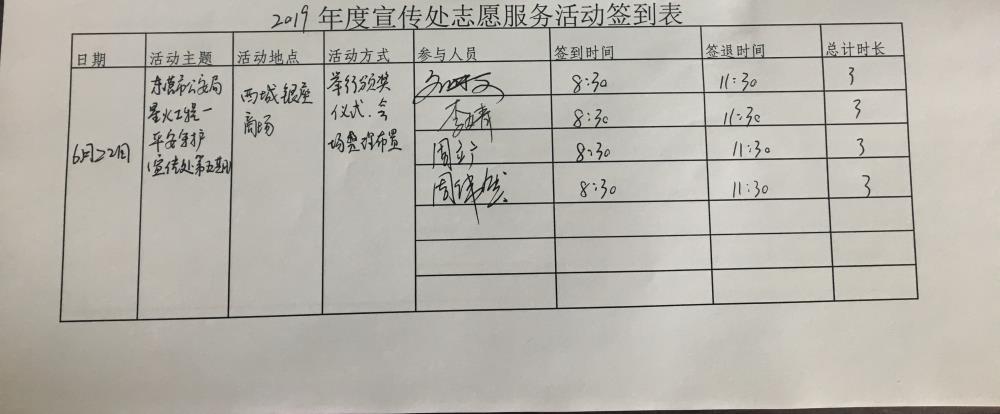 2019年度宣传处志愿服务活动签到表
日期 活动主题 活动地点 活动方式 参与人员 签到时间 签退时间 总计时长
6月22日
东营市公安局
星火工程一
平安守护
宣传处第五期
西城银座
商场
举行颁奖
仪式.会
场整理布置
8:30 11:30 3
李 8:30 11:30 3
周 8:30 11:30 3
周 8:30 11:30 3